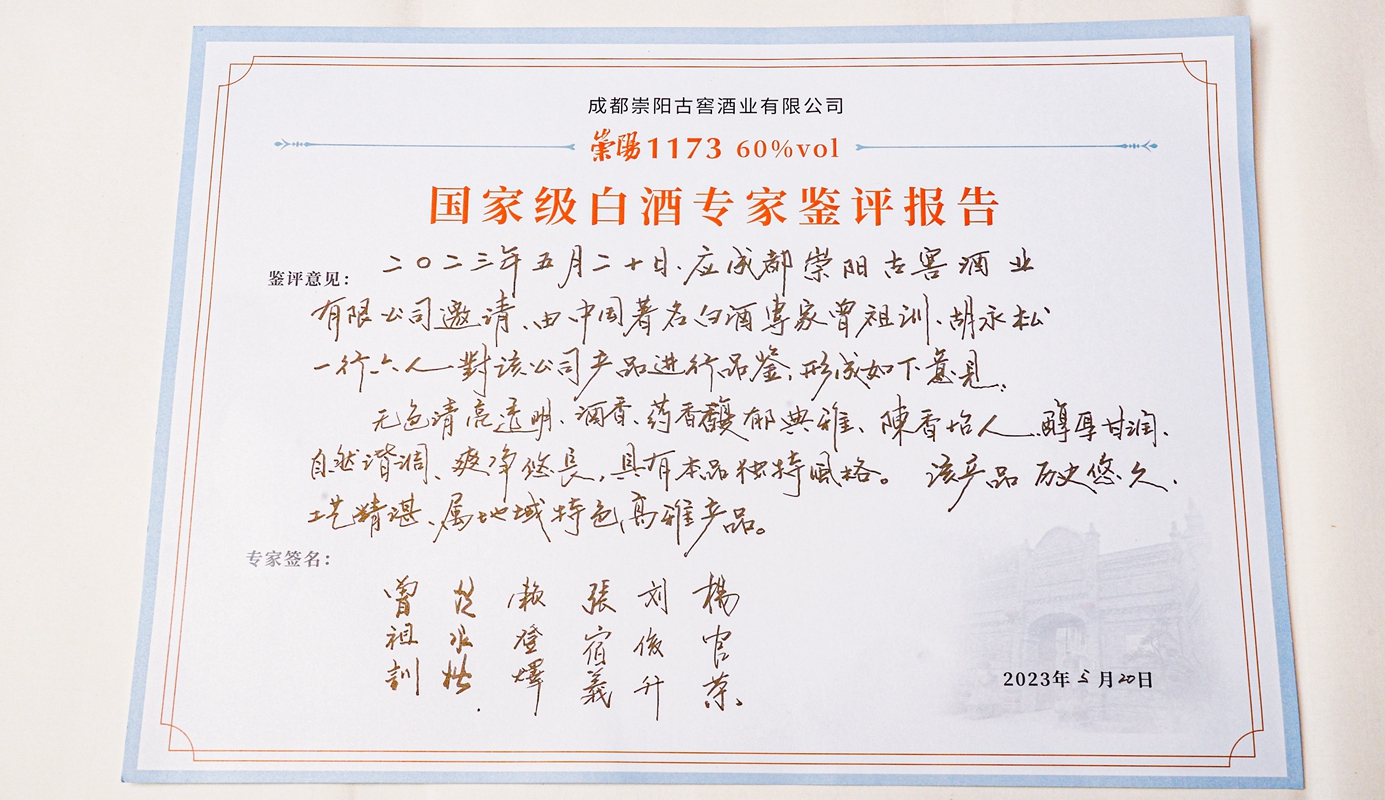 成都崇阳古窖酒业有限公司
崇陽1173 60%vol
国家级白酒专家鉴评报告
鉴评意见： 二〇二三年五月二十日、应成都崇阳古窖酒业
有限公司邀请、由中国著名白酒專家曾祖训、胡永松
一行六人對该公司产品进行品鉴，形成如下意見：
无色清亮透明、酒香、药香馥郁典雅、陳香怡人、醇厚甘润、
自然谐调、爽净悠長，具有本品独特風格。 该产品历史悠久、
工艺精湛、属地域特色高雅产品。
专家签名：
曾祖訓
永松
赖登燡
張宿義
刘俊升
楊官荣
2023年5月20日